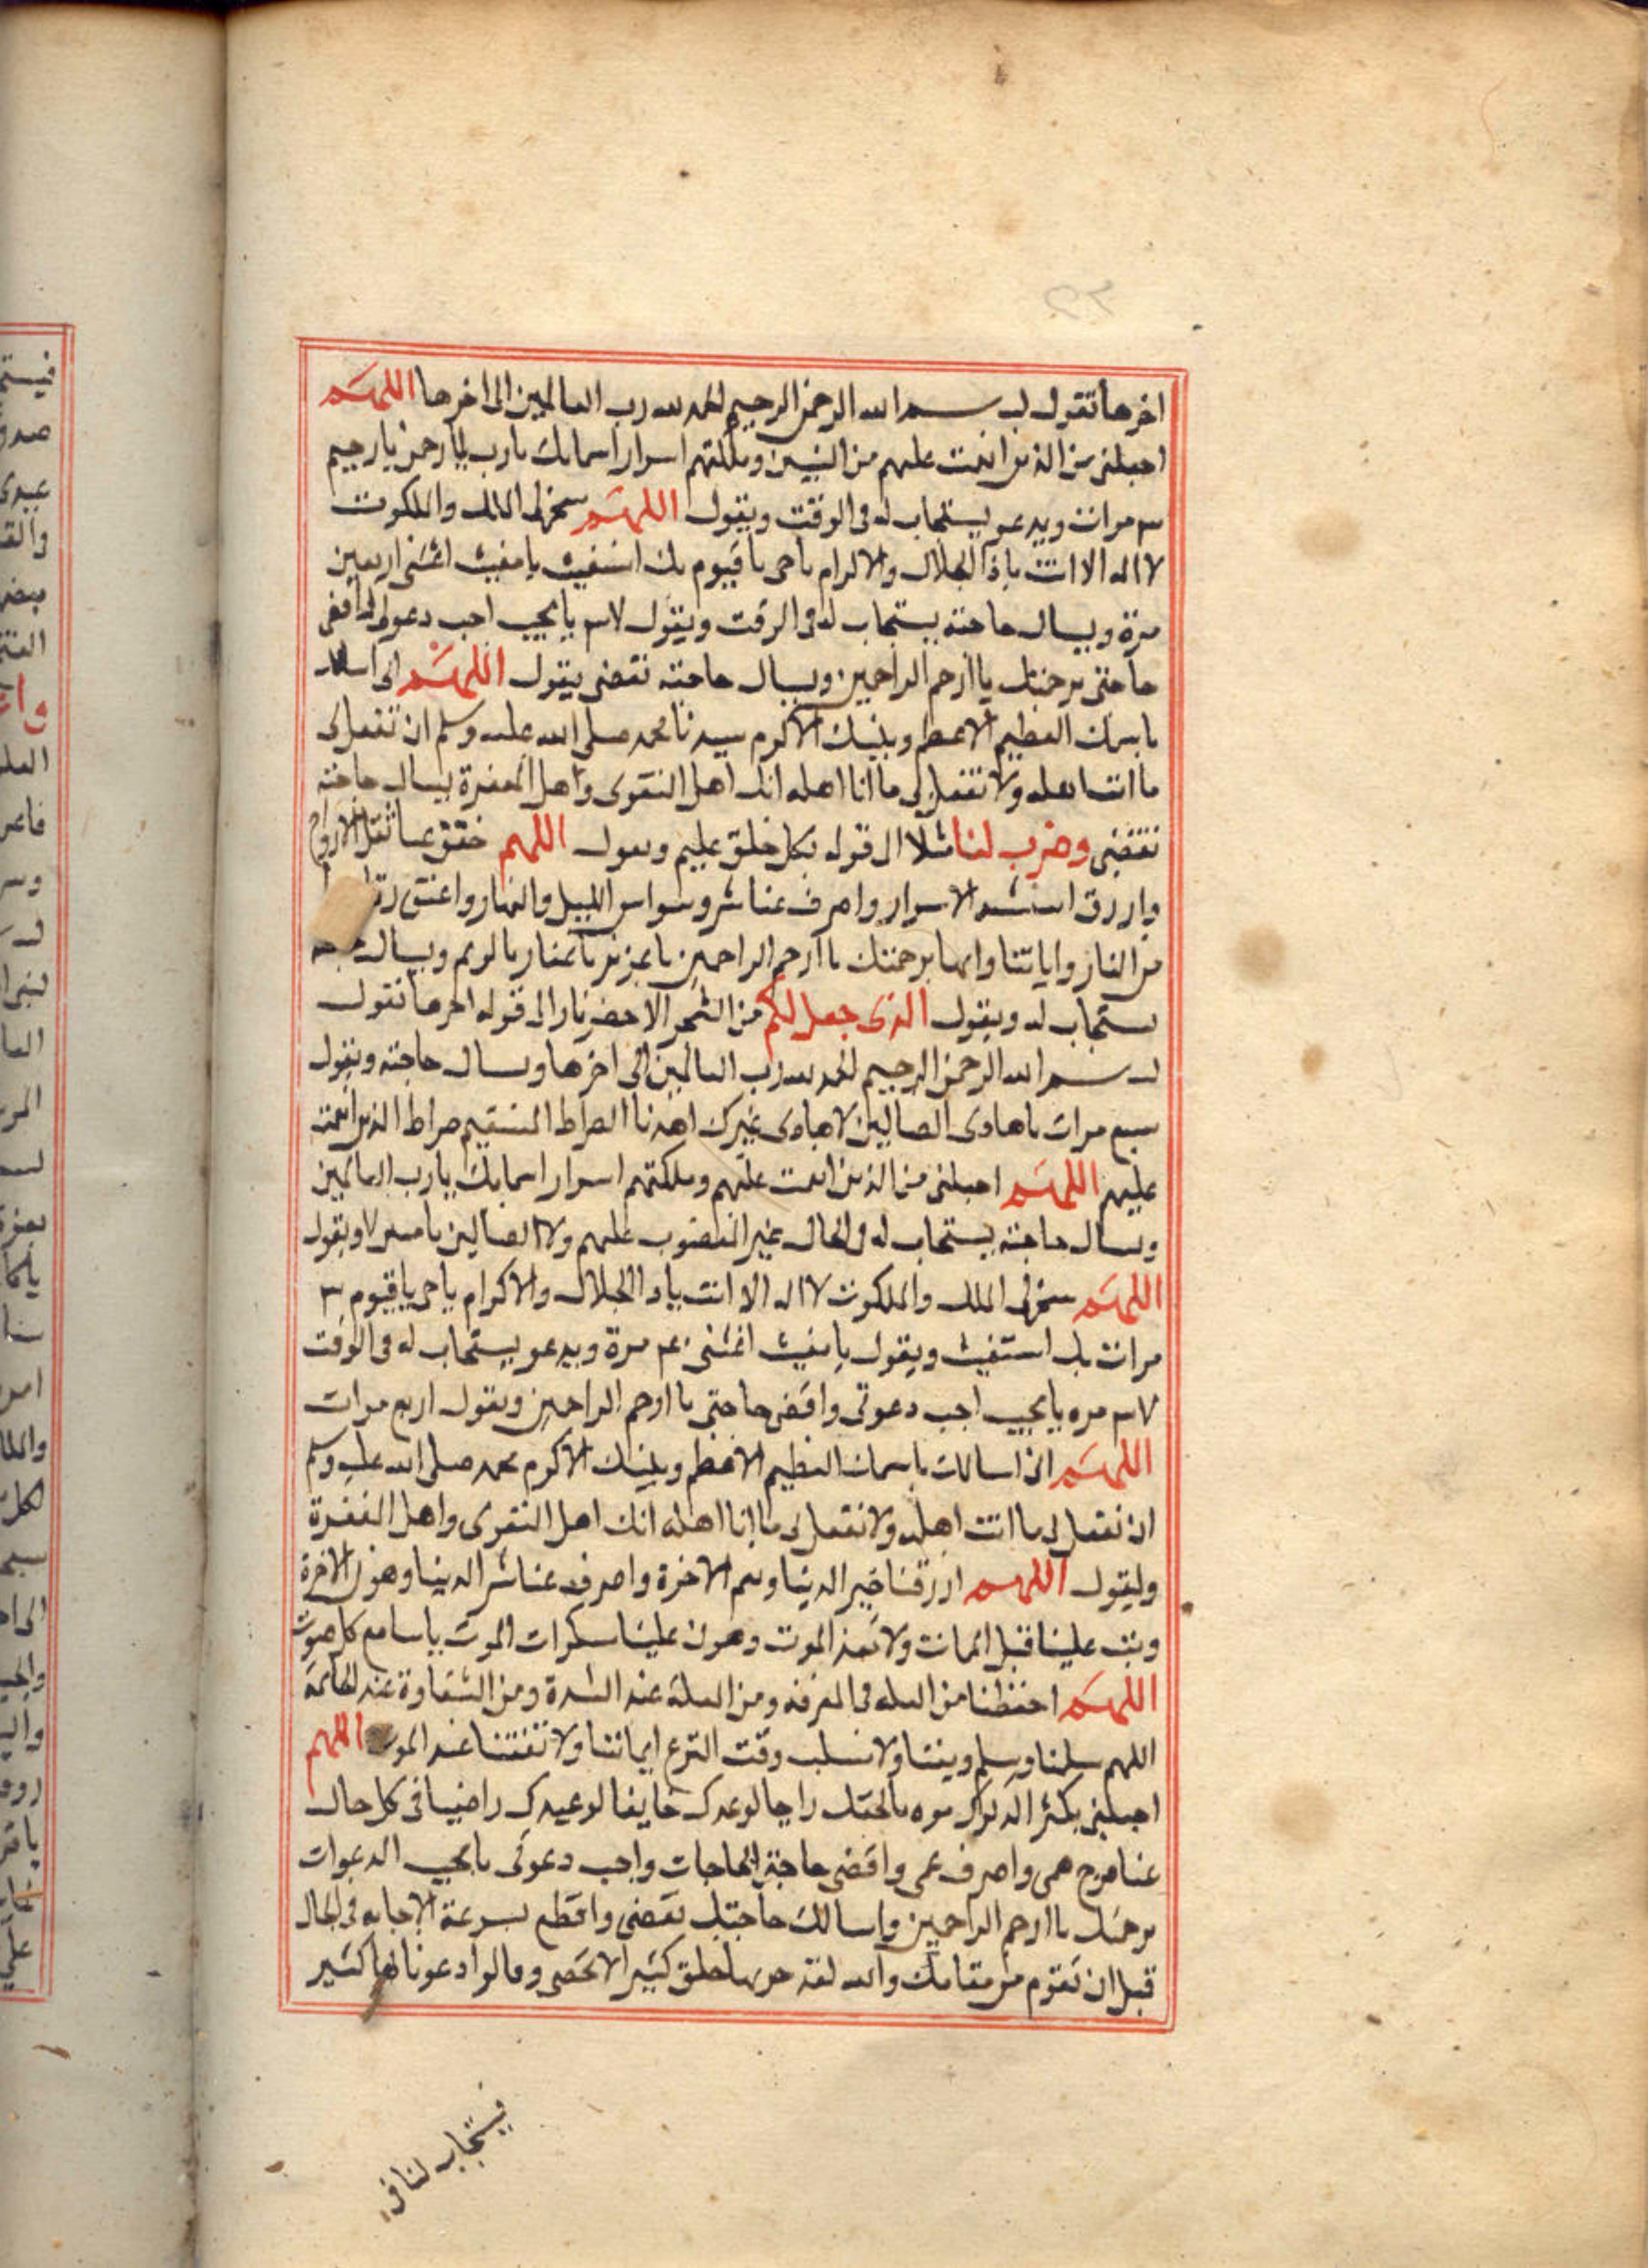 اخرها تقول بسم الله الرحمن الرحيم الحمد لله رب العالمين الى اخرها اللهم
اجعلنى من الذين انعمت عليهم من النبيين وملكتهم اسرار اسمايك يارب يارحمن يارحيم
٣ مرات ويدعو يستجاب له فى الوقت ويقول اللهم سخر لى الملك والملكوت
لا اله الا انت ياذا الجلال والاكرام ياحى ياقيوم بك استغيث يا مغيث اغثنى اربعين
مرة ويسال حاجته يستجاب له فى الوقت ويقول يا مجيب اجب دعوتى واقض
حاجتى برحمتك يا ارحم الراحمين ويسال حاجته تقضى يقول اللهم انى اسالك
باسمك العظيم الاعظم وبنبيك الاكرم سيدنا محمد صلى الله عليه وسلم ان تفعل لى
ما انت اهله ولا تفعل لى ما انا اهله انك اهل التقوى واهل المغفرة يسال حاجته
تقضى وضرب لنا مثلا الى قوله بكل خلق عليم ويقول اللهم خفف عنا ثقل الاوزار
وارزقنا الاسرار واصرف عنا شر وسواس الليل والنهار واعتق
من النار واباتنا وامها برحمتك يا ارحم الراحمين يا عزيز يا غفار يا كريم ويسال
يستجاب له ويقول الذى جعل لكم من الشجر الاخضر نارا الى قوله اخرها تقول
بسم الله الرحمن الرحيم الحمد لله رب العالمين الى اخرها ويسال حاجته ويقول
سبع مرات يا هادى الضالين لا هادى غيرك اهدنا الصراط المستقيم صراط الذين انعمت
عليهم اللهم اجعلنى من الذين انعمت عليهم وملكتهم اسرار اسمايك يا رب العالمين
ويسال حاجته يستجاب له فى الحال غير المغضوب عليهم ولا الضالين يا ويقول
اللهم سخر لى الملك والملكوت لا اله الا انت ياذا الجلال والاكرام ياحى ياقيوم ٣
مرات بك استغيث ويقول يا مغيث اغثنى ٤٠ مرة ويدعو يستجاب له فى الوقت
مره يا مجيب اجب دعوتى واقض حاجتى يا ارحم الراحمين ويقول اربع مرات
اللهم انى اسالك باسمك العظيم الاعظم وبنبيك الاكرم محمد صلى الله عليه وسلم
ان تفعل لى ما انت اهله ولا تفعل لى ما انا اهله انك اهل التقوى واهل المغفرة
وليقول اللهم ارزقنا خير الدنيا ونعم الاخرة واصرف عنا شر الدنيا وهون الاخرة
وتب علينا قبل الممات ولا الموت وهون علينا سكرات الموت يا سامع كل صوت
اللهم احفظنا من العله فى الغربه ومن العلة عند الشدة ومن الشقاوة عند الخاتمة
اللهم سلمنا وسلم ديننا ولا تسلب وقت النزع ايماننا ولا تفتنا عند الموت اللهم
اجعلنى بكثر راجيا لوعدك خايفا لوعيدك راضيا فى كل حال
عنا فرج همى واصرف غمى واقضى حاجة الحاجات واجب دعوتى يا مجيب الدعوات
برحمتك يا ارحم الراحمين واسالك حاجتك تقضى واقطع بسرعة الاجابه فى الحال
قبل ان تقوم من مقامك والله لقد جربها خلق كثير لا تحصى وقالوا دعونا بها كثير
فيستجاب لنا فى